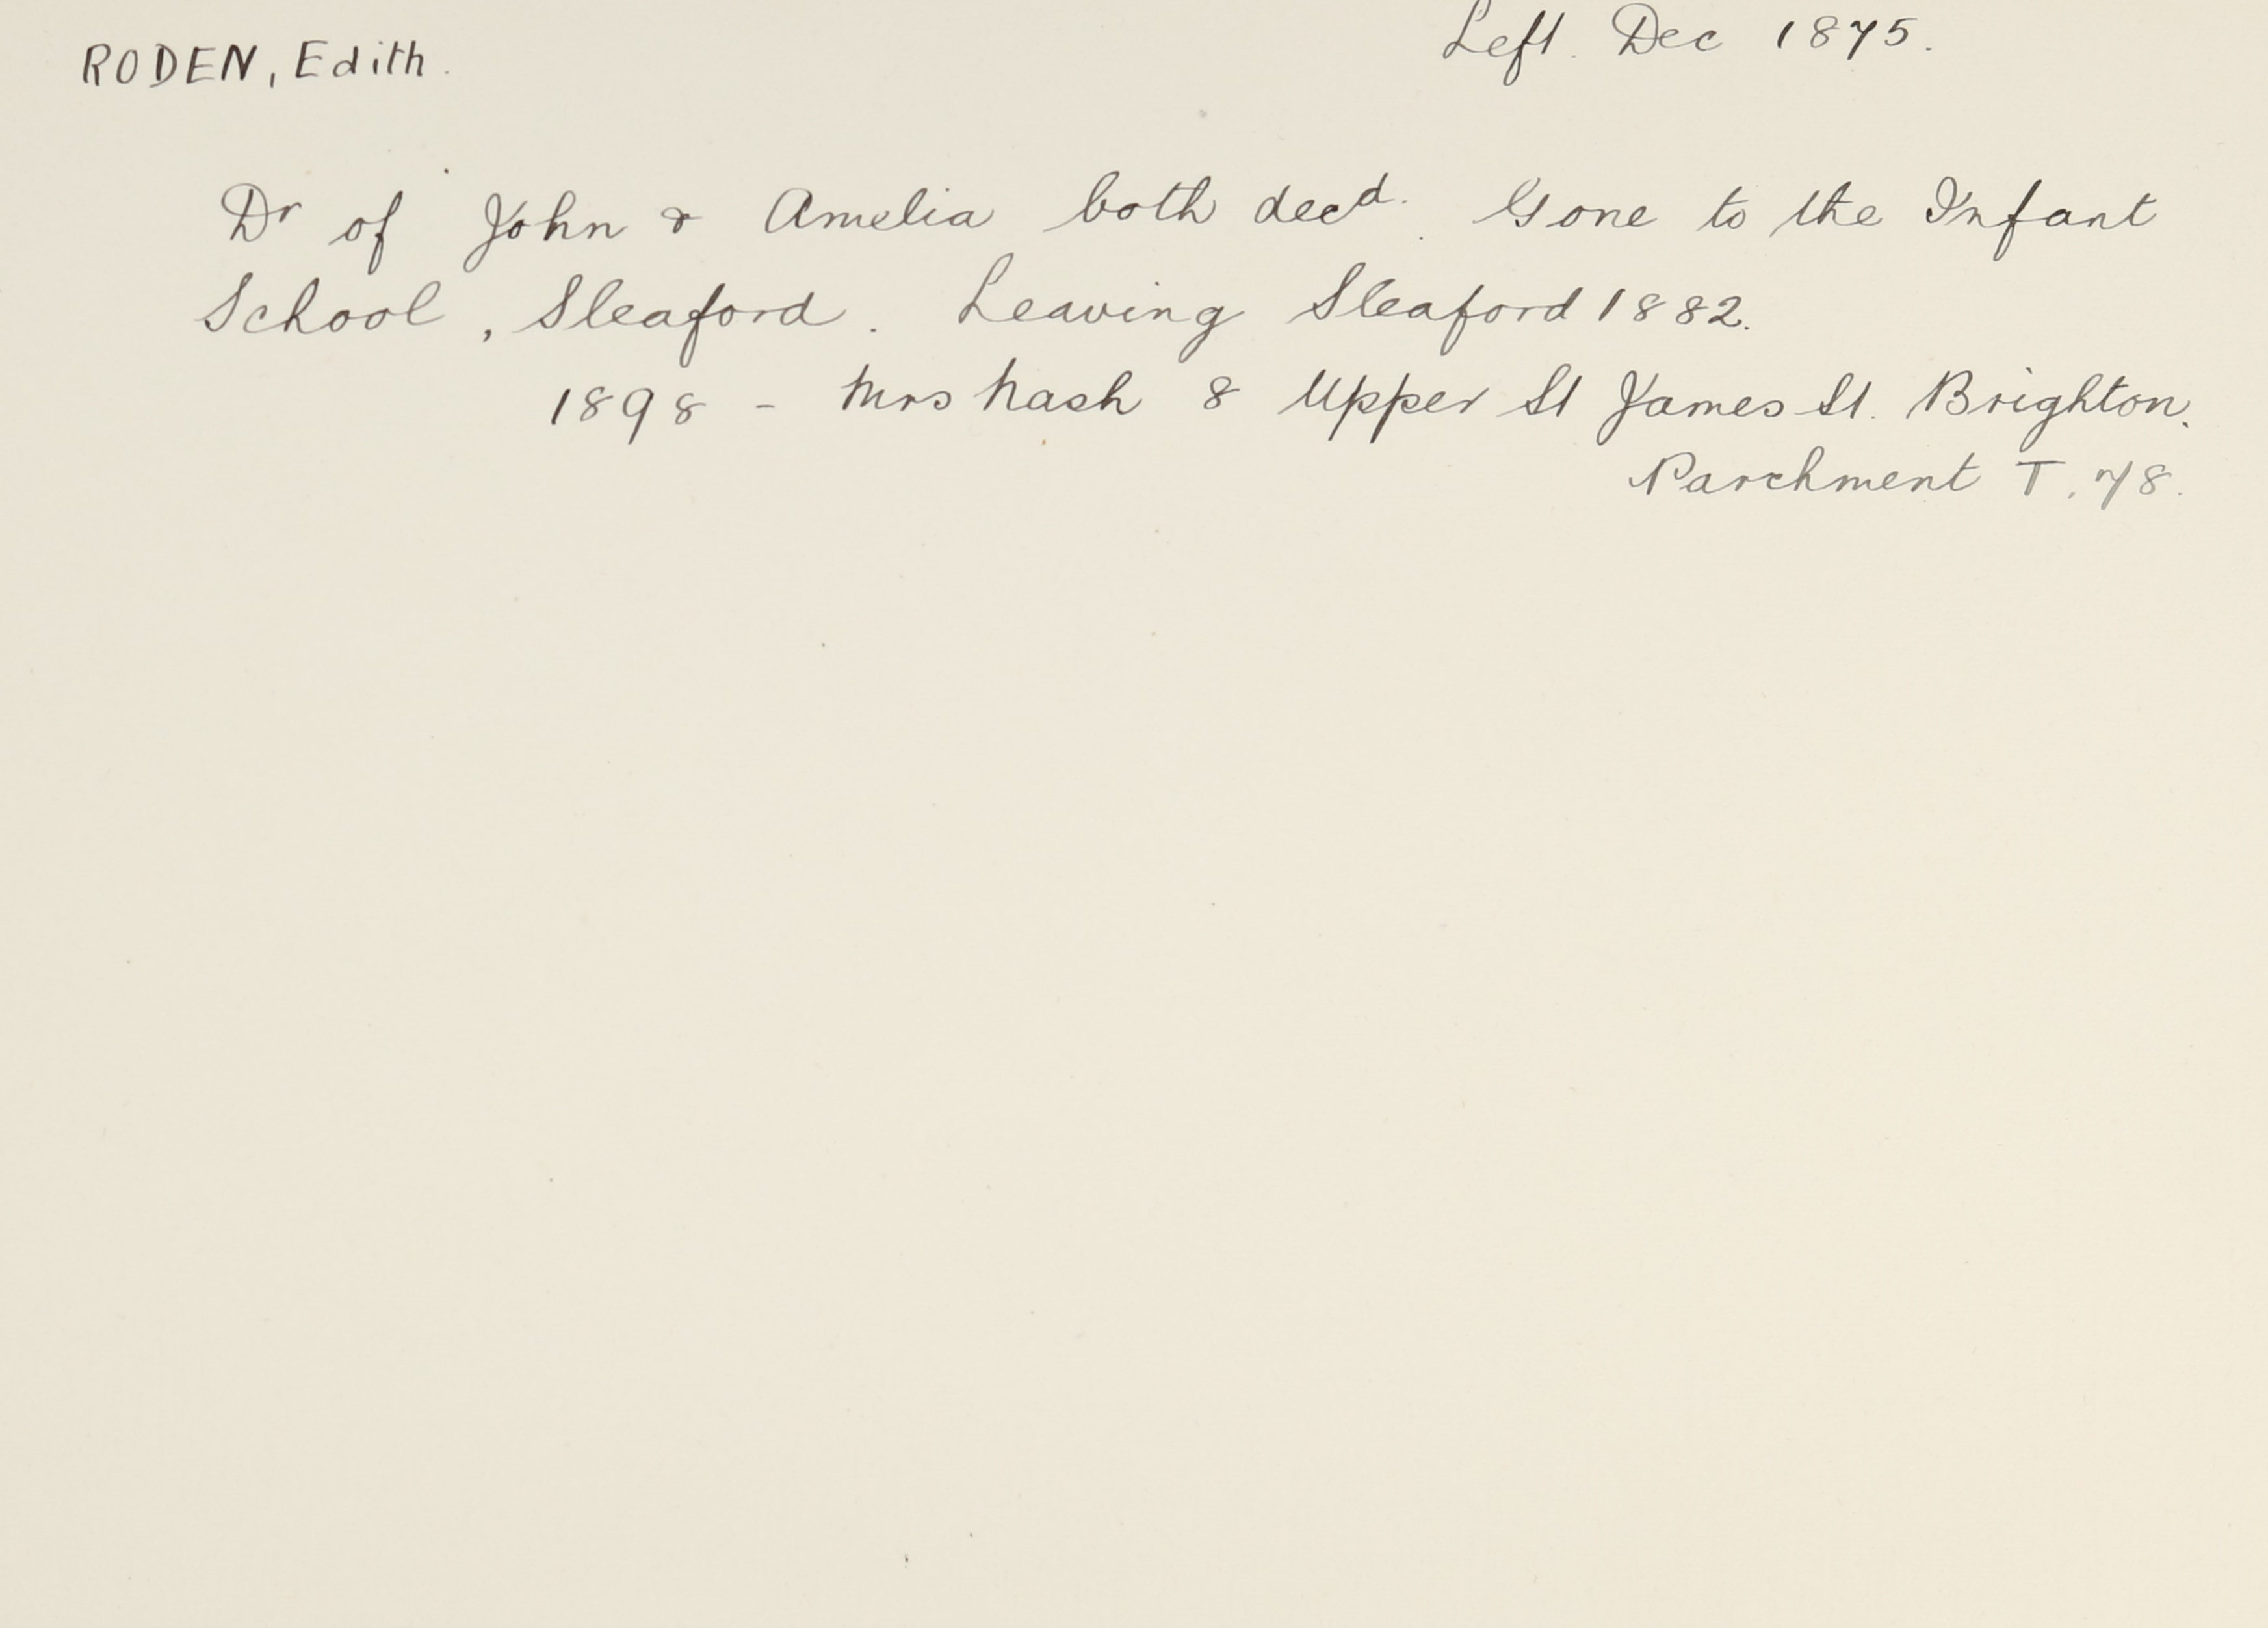 RODEN, Edith. Left. Dec 1875.
Dr of John & Amelia both decd. Gone to the Infant
School, Sleaford. Leaving Sleaford 1882.
1898 - Mrs Nash 8 Upper St James St. Brighton.
Parchment T. 78.